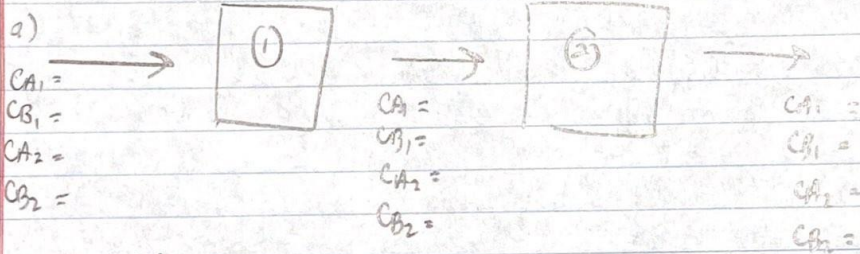 a)
①
②
CA₁ =
CB₁ =
CA₂ =
CB₂ =
CA₁ =
CB₁ =
CA₂ =
CB₂ =
CA₁ =
CB₁ =
CA₂ =
CB₂ =